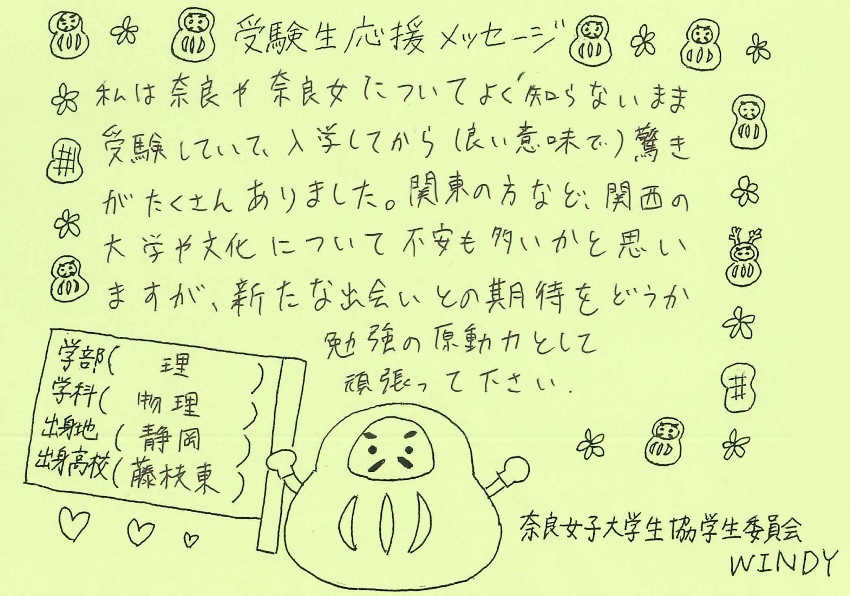 受験生応援メッセージ
私は奈良や奈良女についてよく知らないまま
受験していて、入学してから(良い意味で)驚き
がたくさんありました。関東の方など、関西の
大学や文化について不安も多いかと思い
ますが、新たな出会いとの期待をどうか
勉強の原動力として
頑張って下さい.
学部( 理 )
学科( 物理 )
出身地 ( 静岡 )
出身高校( 藤枝東 )
奈良女子大学生協学生委員会
WINDY